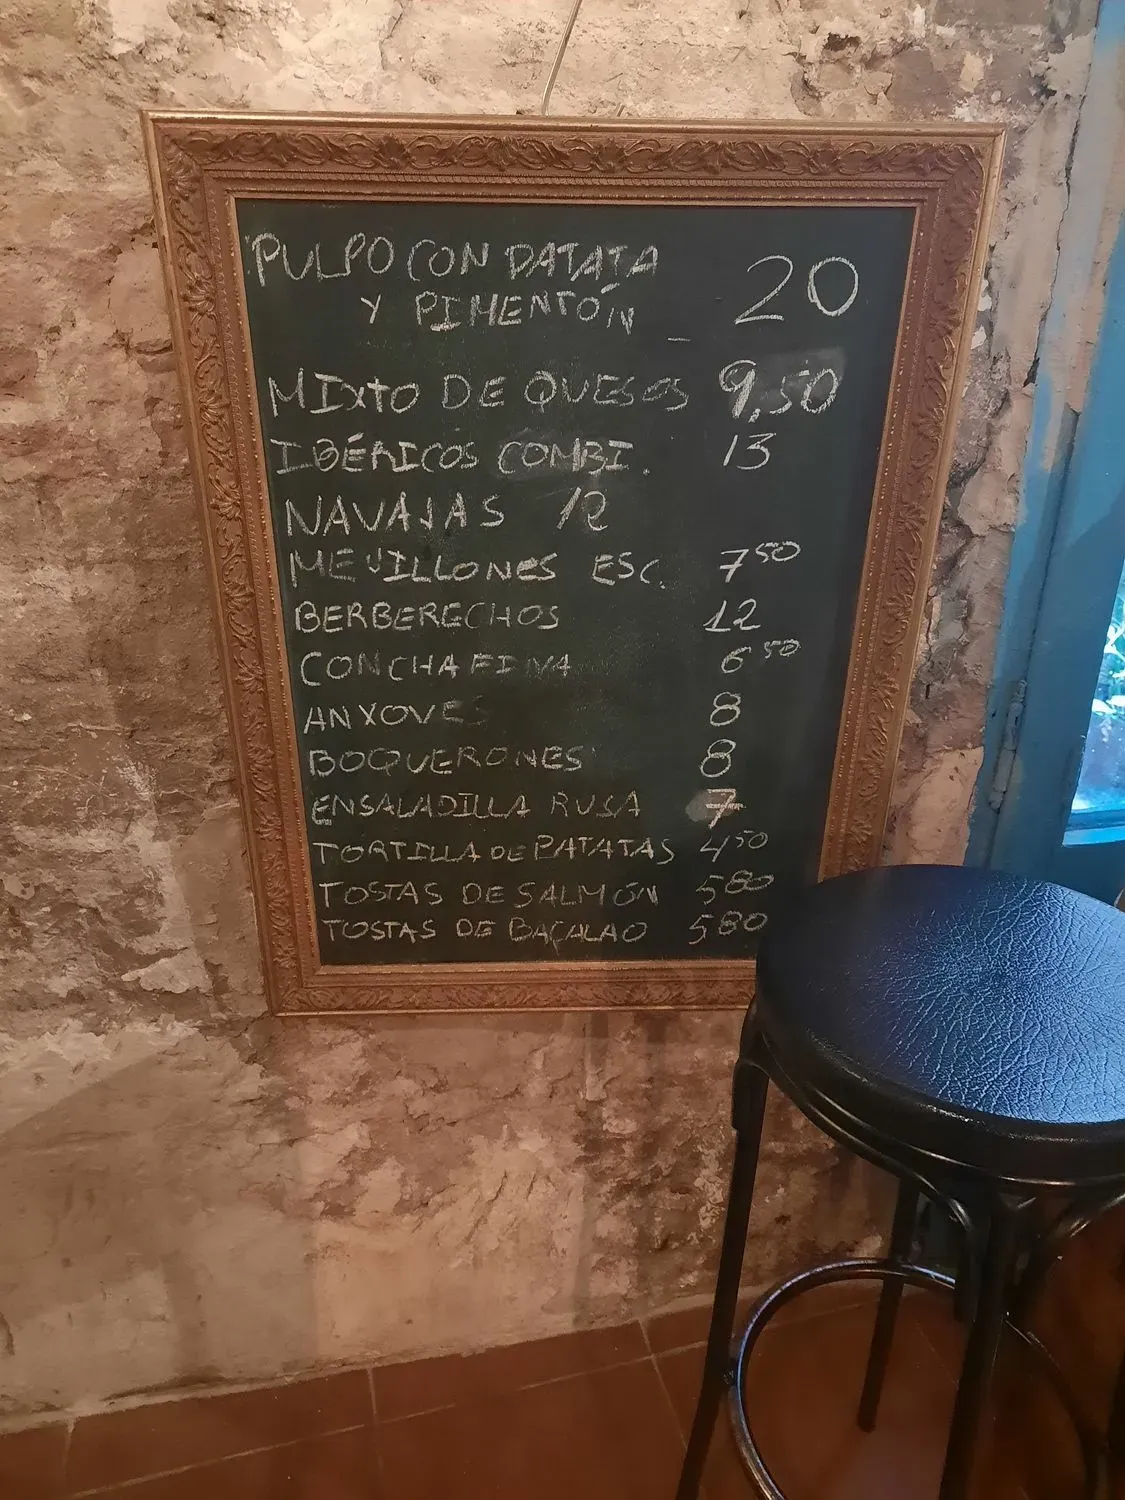 PULPO CON PATATA 20
Y PIMENTÓN
MIXTO DE QUESOS 9,50
IBÉRICOS COMBI. 13
NAVAJAS 12
MEJILLONES ESC. 7 50
BERBERECHOS 12
CONCHA FINA 6 50
ANXOVES 8
BOQUERONES 8
ENSALADILLA RUSA 7
TORTILLA DE PATATAS 4 50
TOSTAS DE SALMÓN 5 80
TOSTAS DE BACALAO 5 80